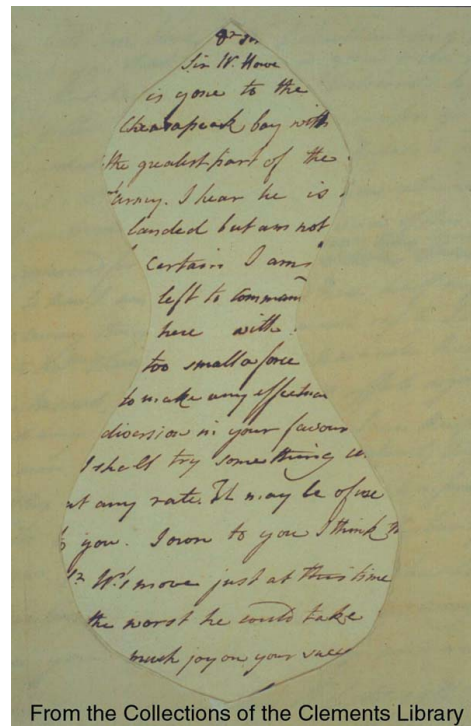 Sir W. Howe
is gone to the
Chesapeak bay with
the greatest part of the
army. I hear he is
landed but am not
certain I am
left to comman
here with
too small a force
to make any effectua
diversion in your favour
I shall try something
at any rate. It may be of use
you. I own to you I think
Wm's move just at this time
the worst he could take
much joy on your succe
From the Collections of the Clements Library